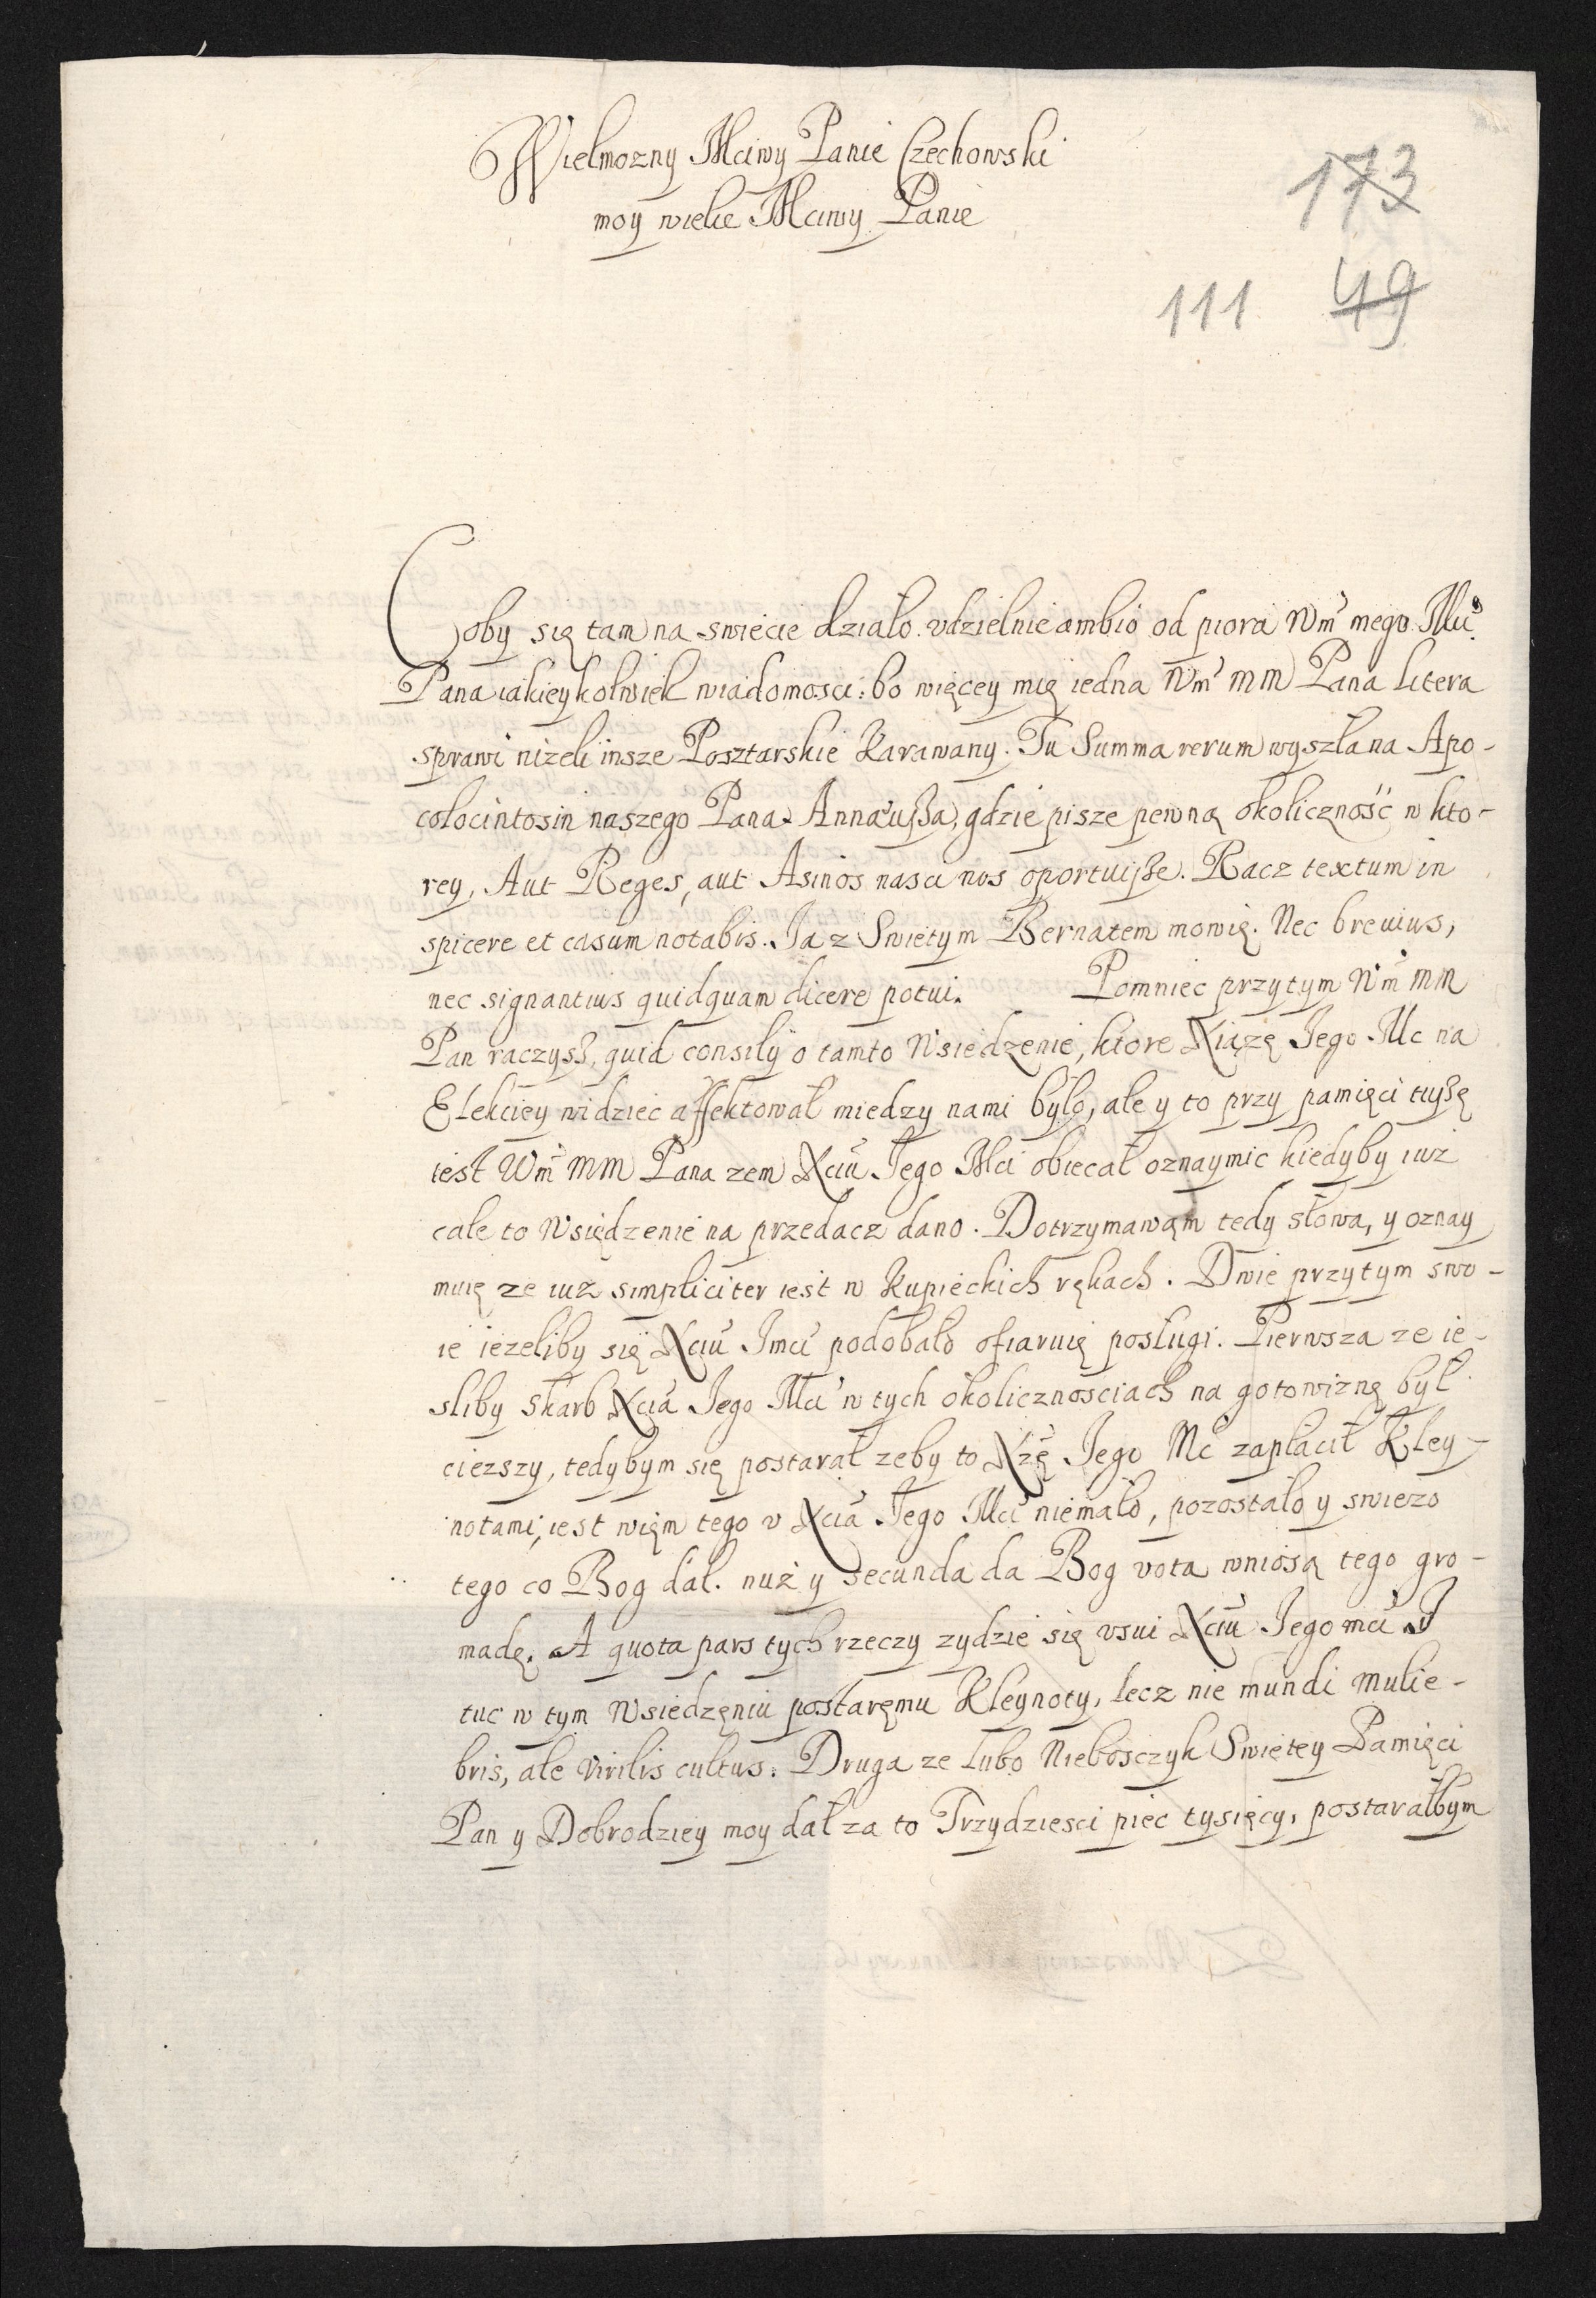 Wielmozny Mciwy Panie Czechowski
moy wielie Mciwy Panie
173
111 49
Coby się tam na swiecie działo. vdzielnie ambio od piora Wm̃ mego Mci
Pana iakieykolwiek wiadomosci: bo więcey mię iedna Wm̃ MM Pana litera
sprawi nizeli insze Posztarskie Karawany. Tu Summa rerum wyszła na Apo-
colocintosin naszego Pana Annæußa, gdzie pisze pewną okoliczność w kto-
rey, Aut Reges, aut Asinos nasci nos oportuiße. Racz textum in
spicere et casum notabis. Ja z Swietym Bernatem mowię. Nec breuius,
nec signantius quidquam dicere potui. Pomniec przytym Wm̃ MM
Pan raczysz, quid consilij o tamto Wsiedzenie, ktore Xiązę Jego Mc na
Elekciey widziec affektował miedzy nami było, ale y to przy pamięci tuszę
iest Wm̃ MM Pana zem Xciu Jego Mci obiecał oznaymic kiedyby iuz
cale to Wsiędzenie na przedacz dano. Dotrzymawam tedy słowa, y oznay
muię ze iuż simpliciter iest w Kupieckich rękach. Dwie przytym swo-
ie iezeliby się Xciu Jmci podobało ofiaruię posługi. Pierwsza ze ie-
sliby skarb Xcia Jego Mci w tych okolicznosciach na gotowiznę był
ciezszy, tedybym się postarał zeby to Xzę Jego Mc zapłacił Kley-
notami, iest więm tego v Xcia Jego Mci niemało, pozostało y swiezo
tego co Bog dał. nuż y secunda da Bog vota wniosą tego gro-
madę. A quota pars tych rzeczy zydzie się vsui Xciu Jego mci J
tuc w tym Wsiedzęniu postaręmu Kleynoty, lecz nie mundi mulie-
bris, ale virilis cultus. Druga ze lubo Nieboszczyk Swiętey Pamięci
Pan y Dobrodziey moy dał za to Trzydziesci piec tysięcy, postarałbym